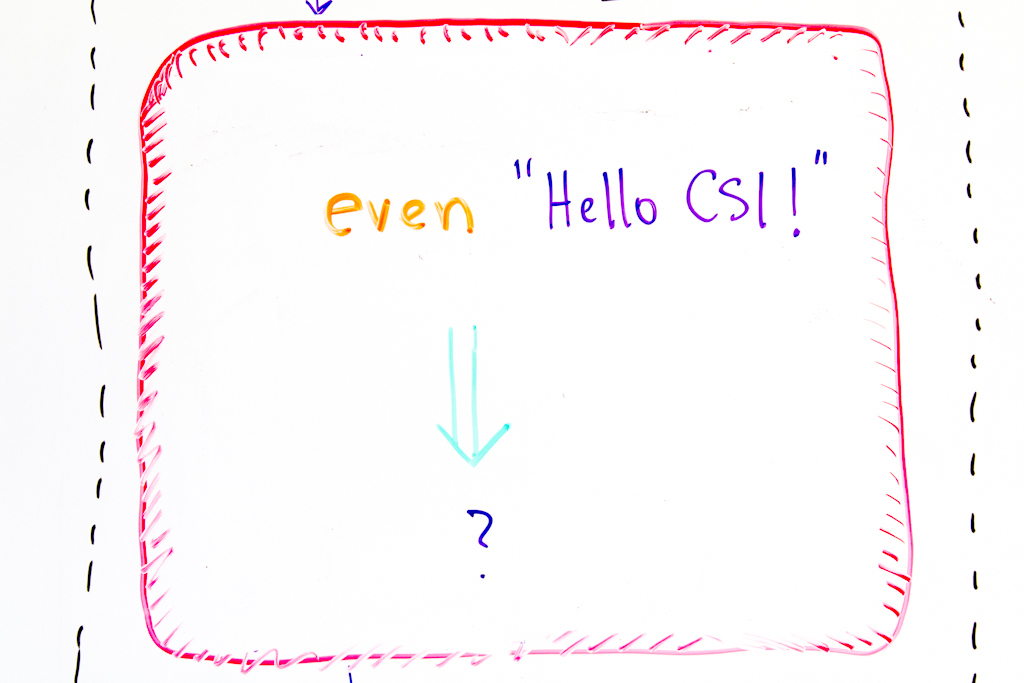 even "Hello CSI!"
?